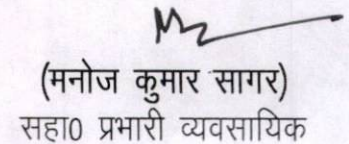 (मनोज कुमार सागर)
सहा0 प्रभारी व्यवसायिक